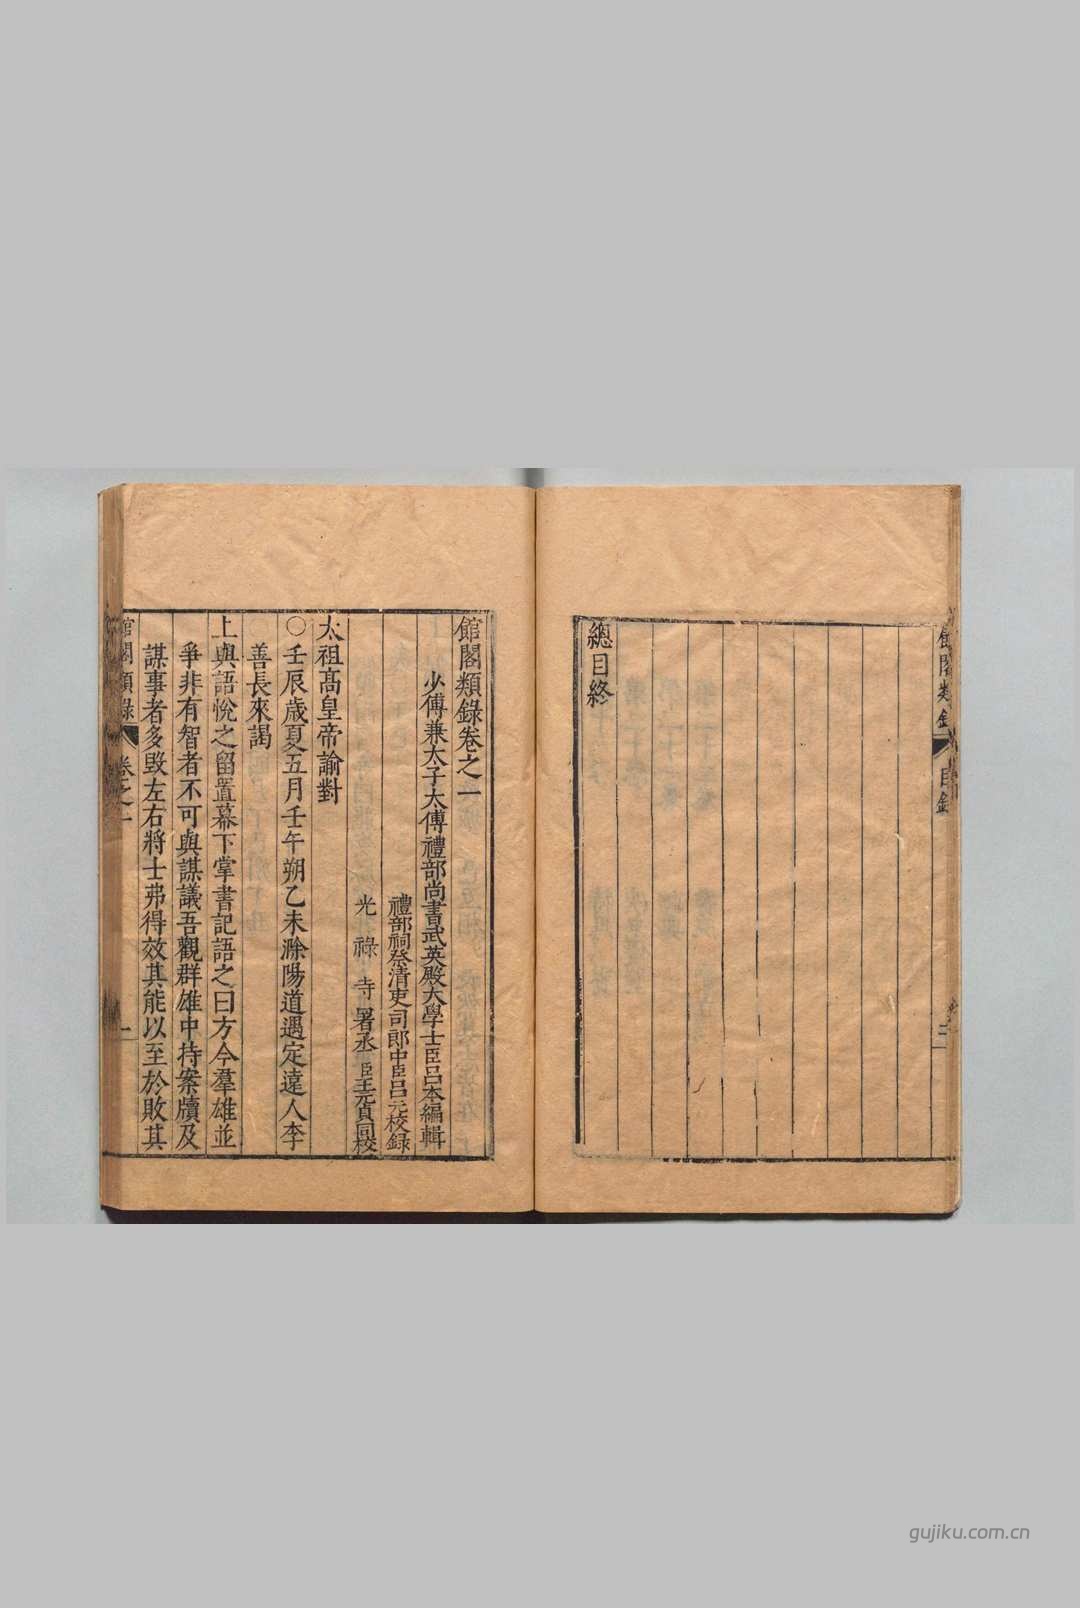 館閣類錄
目錄
二
總目終
館閣類錄卷之一
少傅兼太子太傅禮部尚書武英殿大學士臣呂本編輯
禮部祠祭清吏司郎中臣呂元校錄
光祿寺署丞臣王元貞同校
太祖高皇帝諭對
○壬辰歲夏五月壬午朔乙未滁陽道遇定遠人李
善長來謁
上與語悅之留置幕下掌書記語之曰方今羣雄並
爭非有智者不可與謀議吾觀群雄中持案牘及
謀事者多毀左右將士弗得效其能以至於敗其
館閣類錄
卷之一
一
gujiku.com.cn